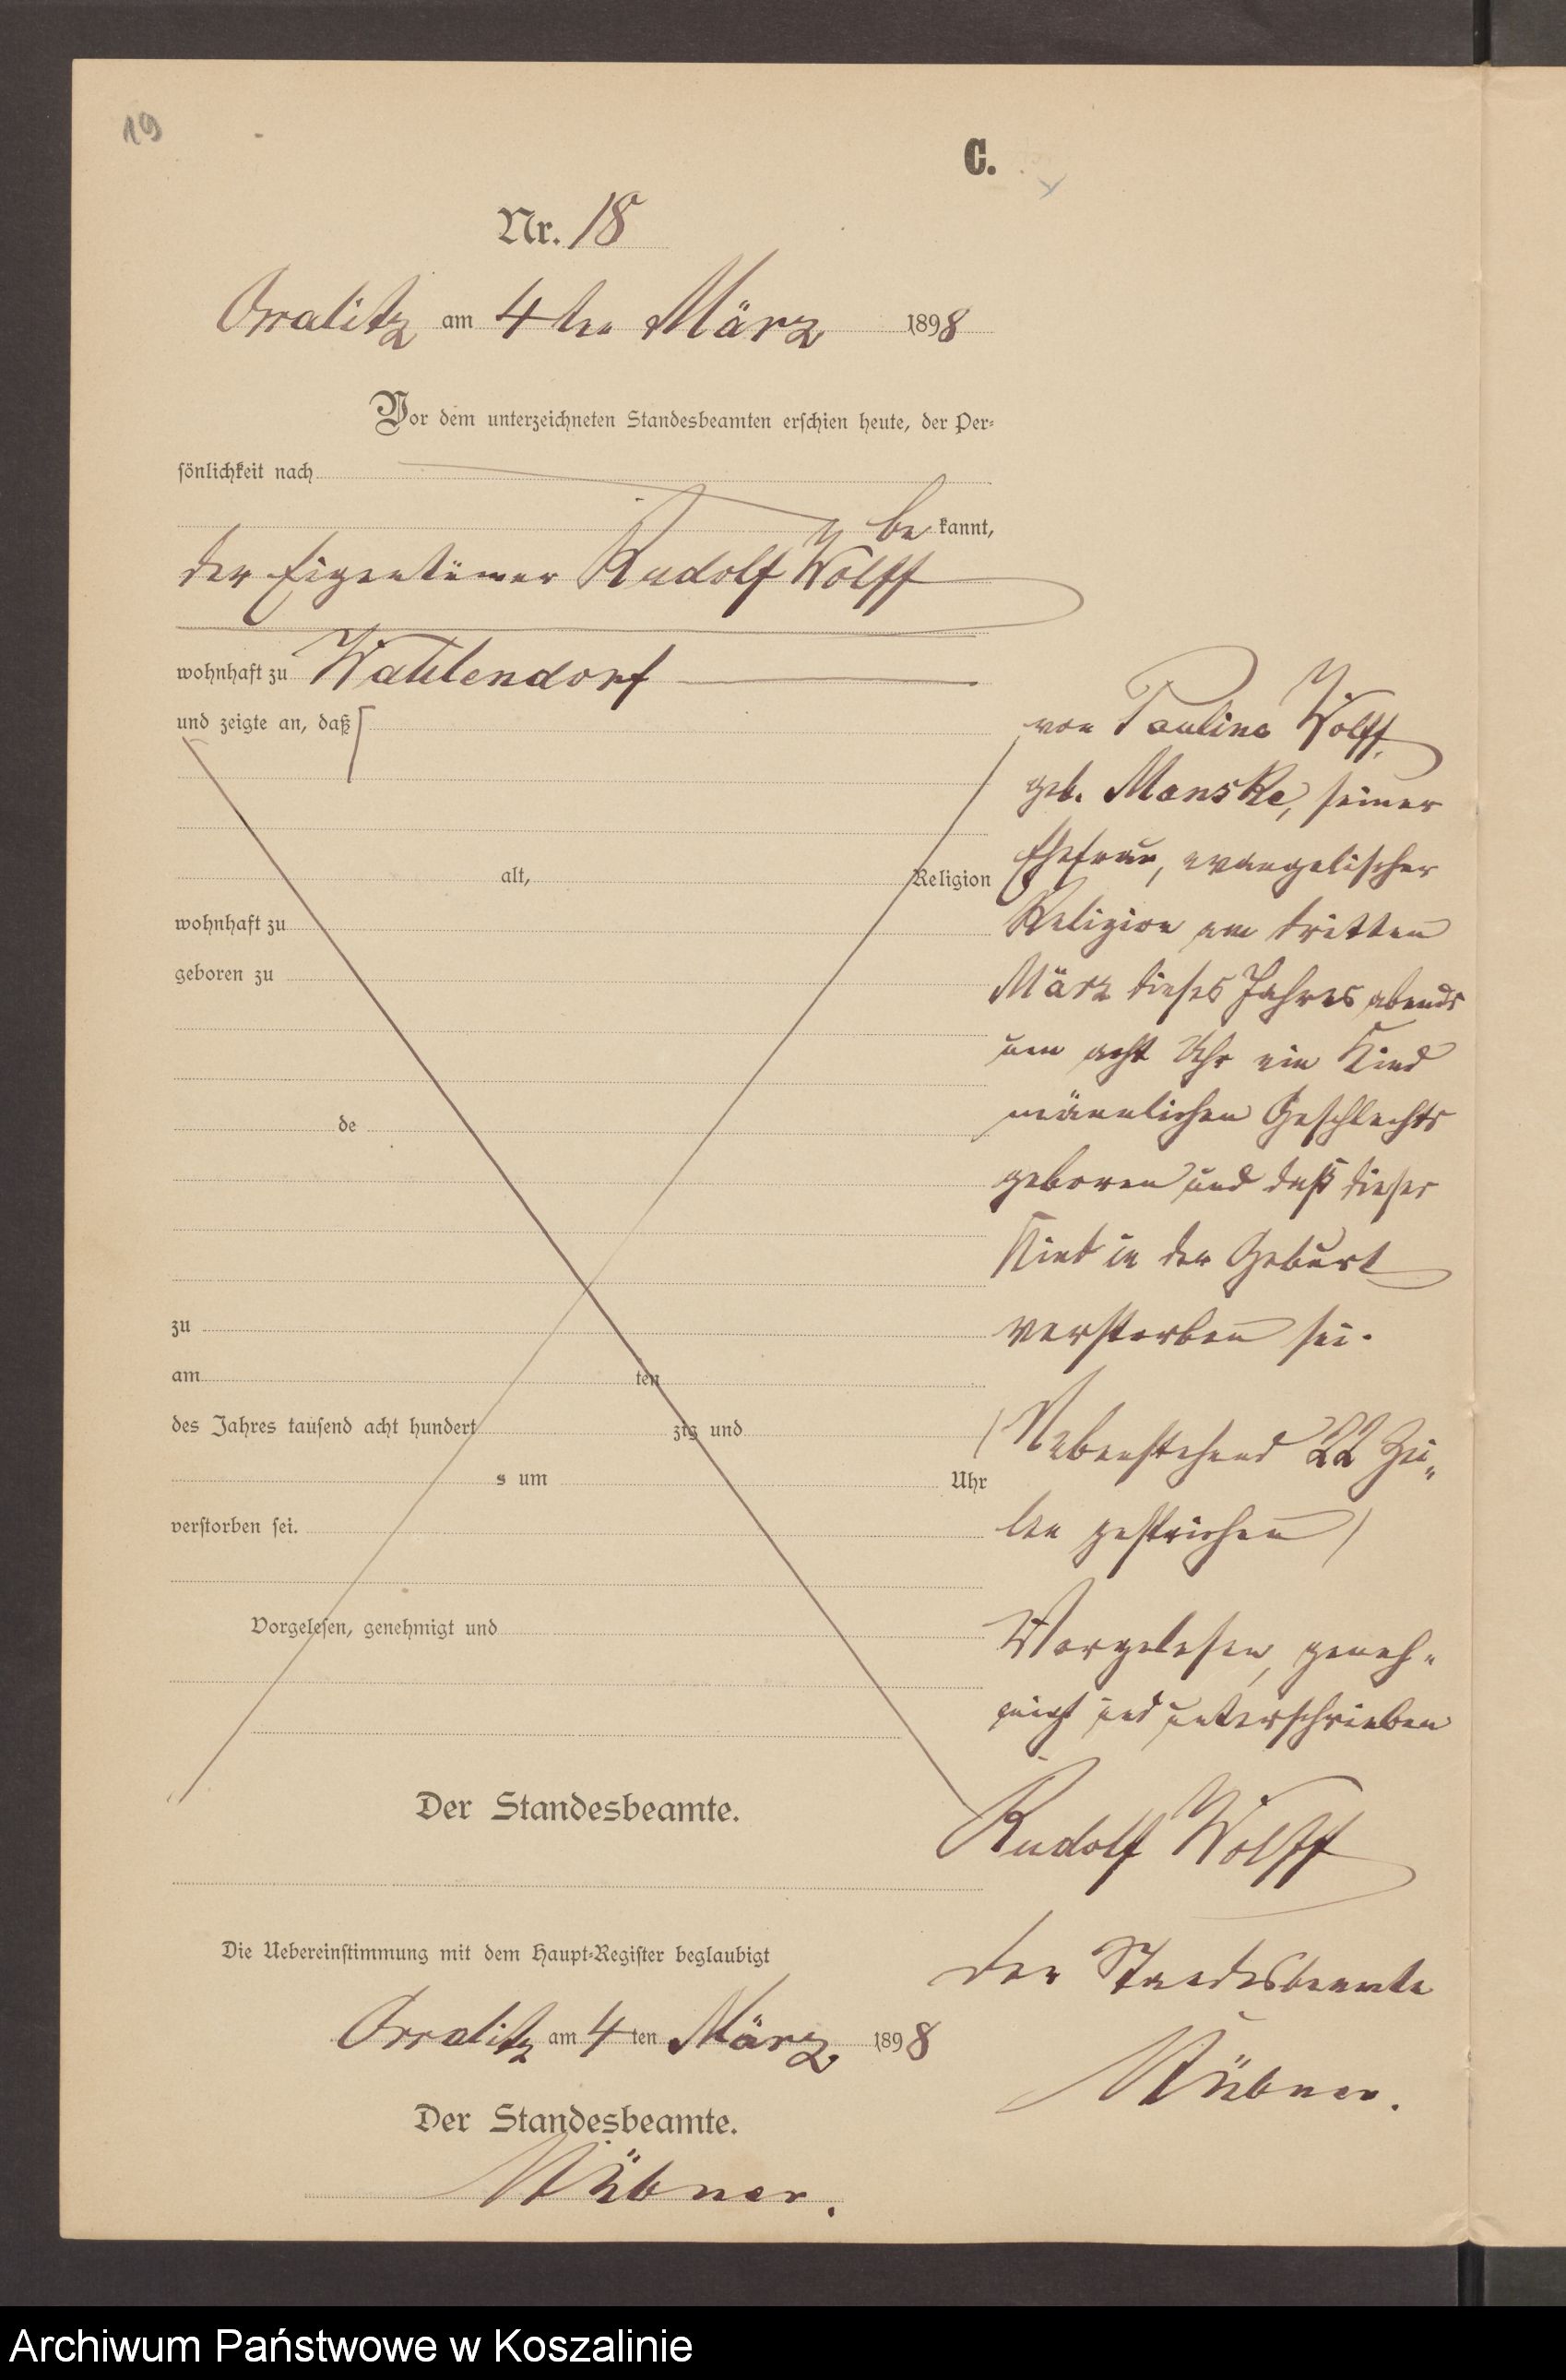 19
C.
Nr. 18
Orralitz am 4ten März 1898
Vor dem unterzeichneten Standesbeamten erschien heute, der Per=
sönlichkeit nach
be kannt,
der Eigentümer Rudolf Wolff
wohnhaft zu Wahlendorf
und zeigte an, daß
alt, Religion
wohnhaft zu
geboren zu
de
zu
am ten
des Jahres tausend acht hundert zig und
s um Uhr
verstorben sei.
Vorgelesen, genehmigt und
Der Standesbeamte.
von Pauline Wolff,
geb. Manske, seiner
Ehefrau, evangelischer
Religion am dritten
März dieses Jahres abends
um acht Uhr ein Kind
männlichen Geschlechts
geboren und daß dieses
Kind in der Geburt
verstorben sei.
(Nebenstehend 22 Zei=
len gestrichen)
Vorgelesen, geneh=
migt und unterschrieben
Rudolf Wolff
Der Standesbeamte
Nübner.
Die Uebereinstimmung mit dem Haupt=Register beglaubigt
Orralitz am 4 ten März 1898
Der Standesbeamte.
Nübner.
Archiwum Państwowe w Koszalinie